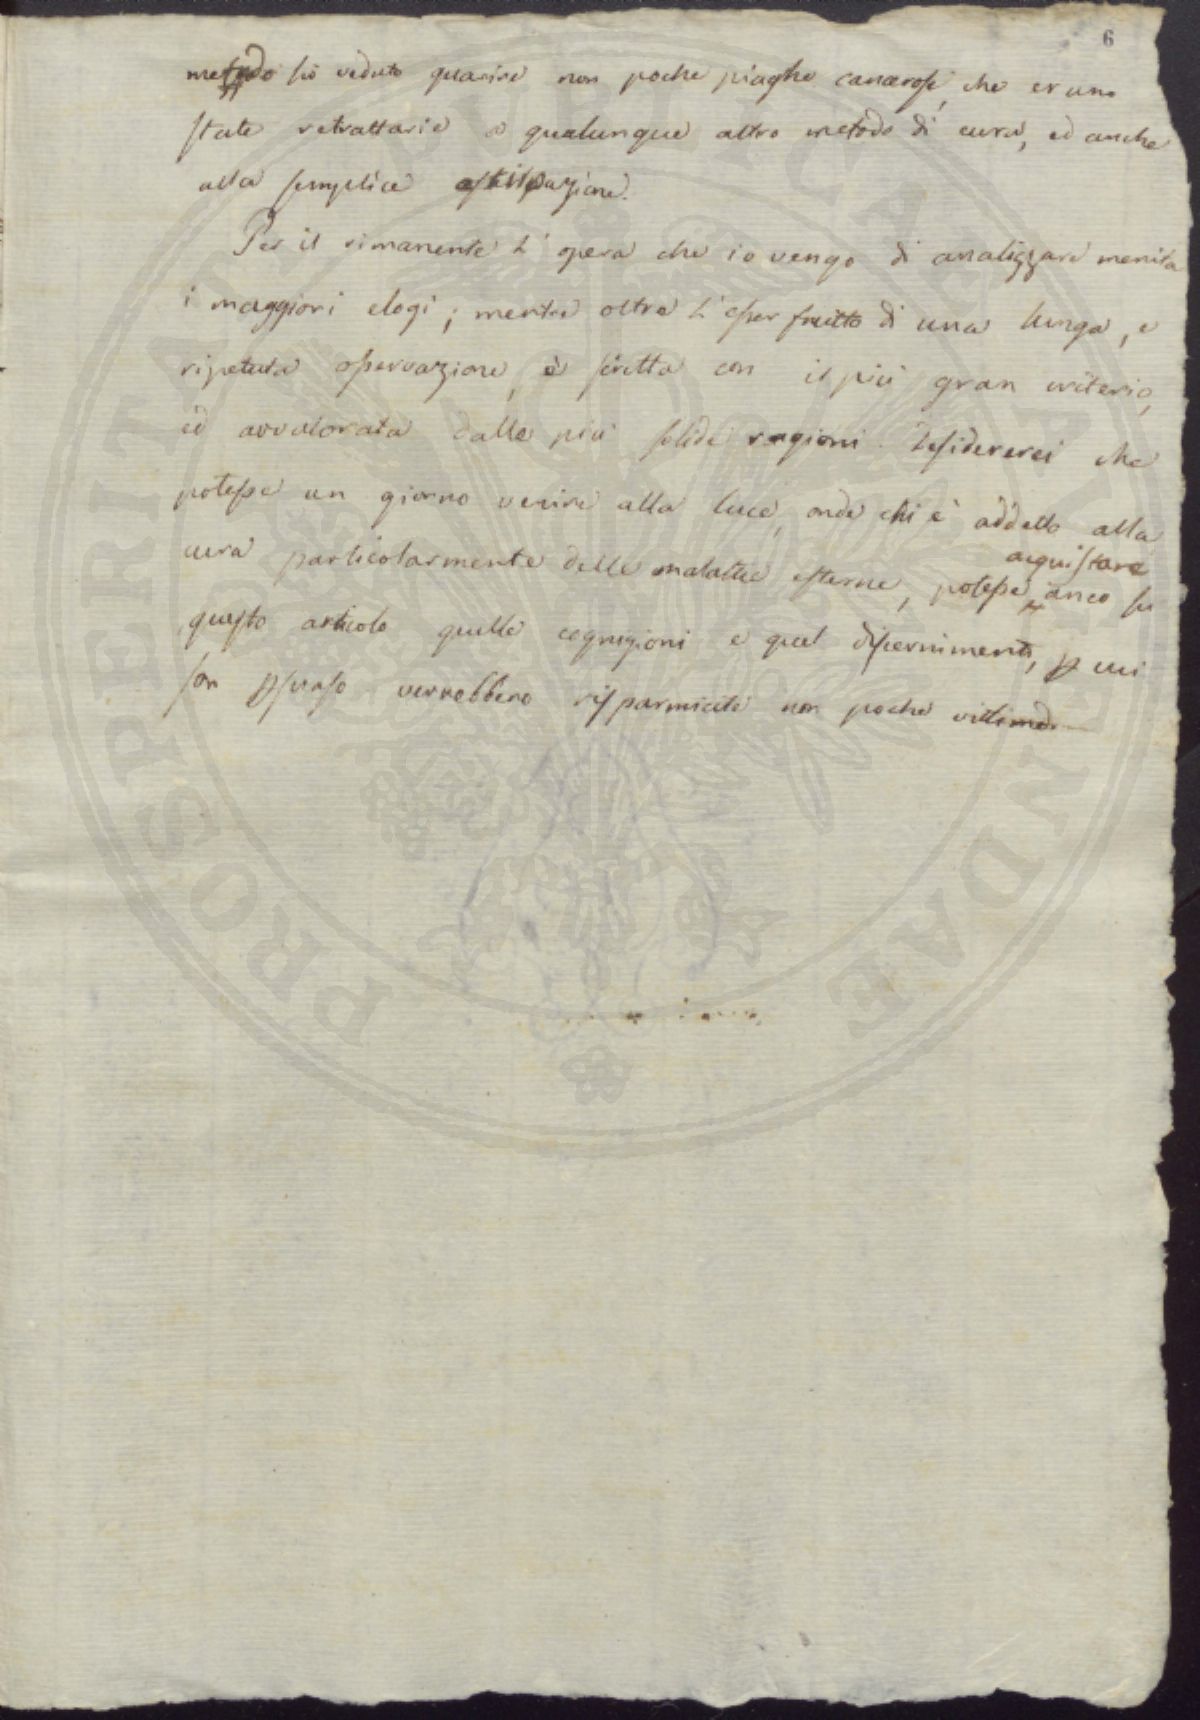 6
metodo hò veduto guarire non poche piaghe cancerose, che erano
state retrattarie a qualunque altro metodo di cura, ed anche
alla semplice estirpazione.
Per il rimanente l'opera che io vengo di analizzare merita
i maggiori elogi; mentre oltre l'esser frutto di una lunga, e
ripetuta osservazione, è scritta con il più gran criterio,
ed avvalorata dalle più solide ragioni. Desidererei che
potesse un giorno venire alla luce, onde chi è addetto alla
cura particolarmente delle malattie esterne, potesse acquistare anco su
questo articolo quelle cognizioni e quel discernimento, p cui
verrebbero risparmiate non poche vittime
PROSPERITATI PUBLICAE AUGENDAE